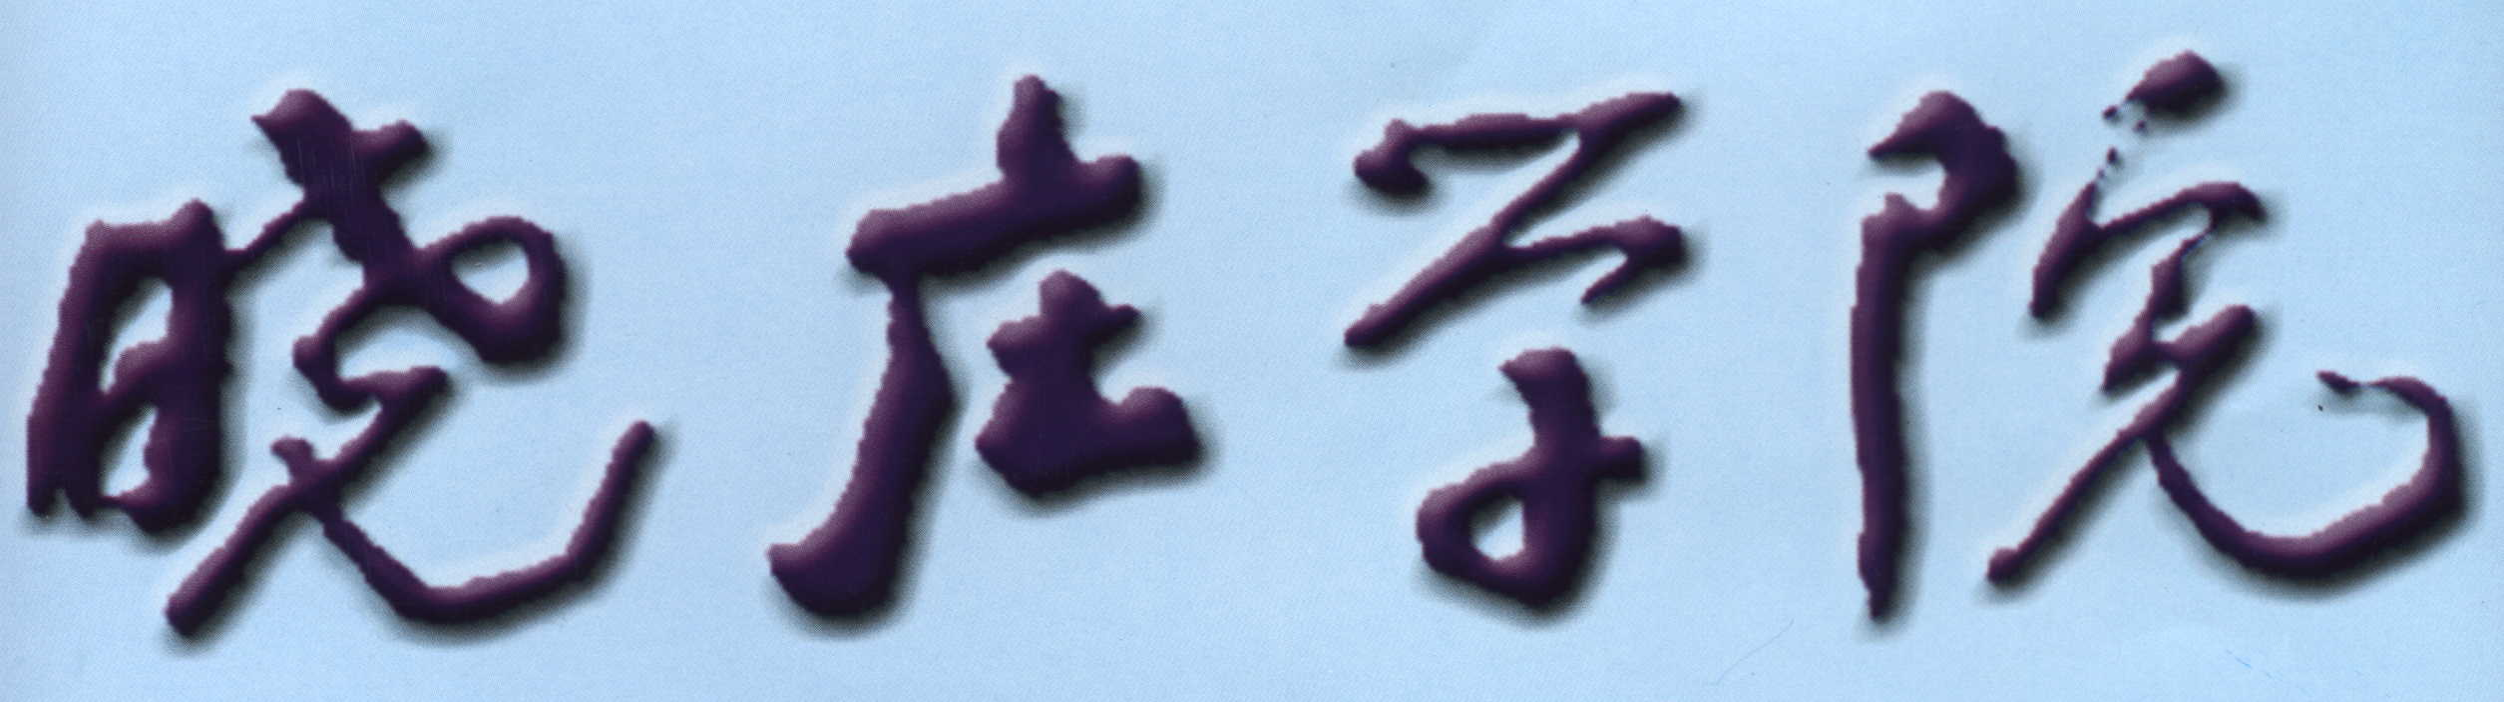 晓庄学院